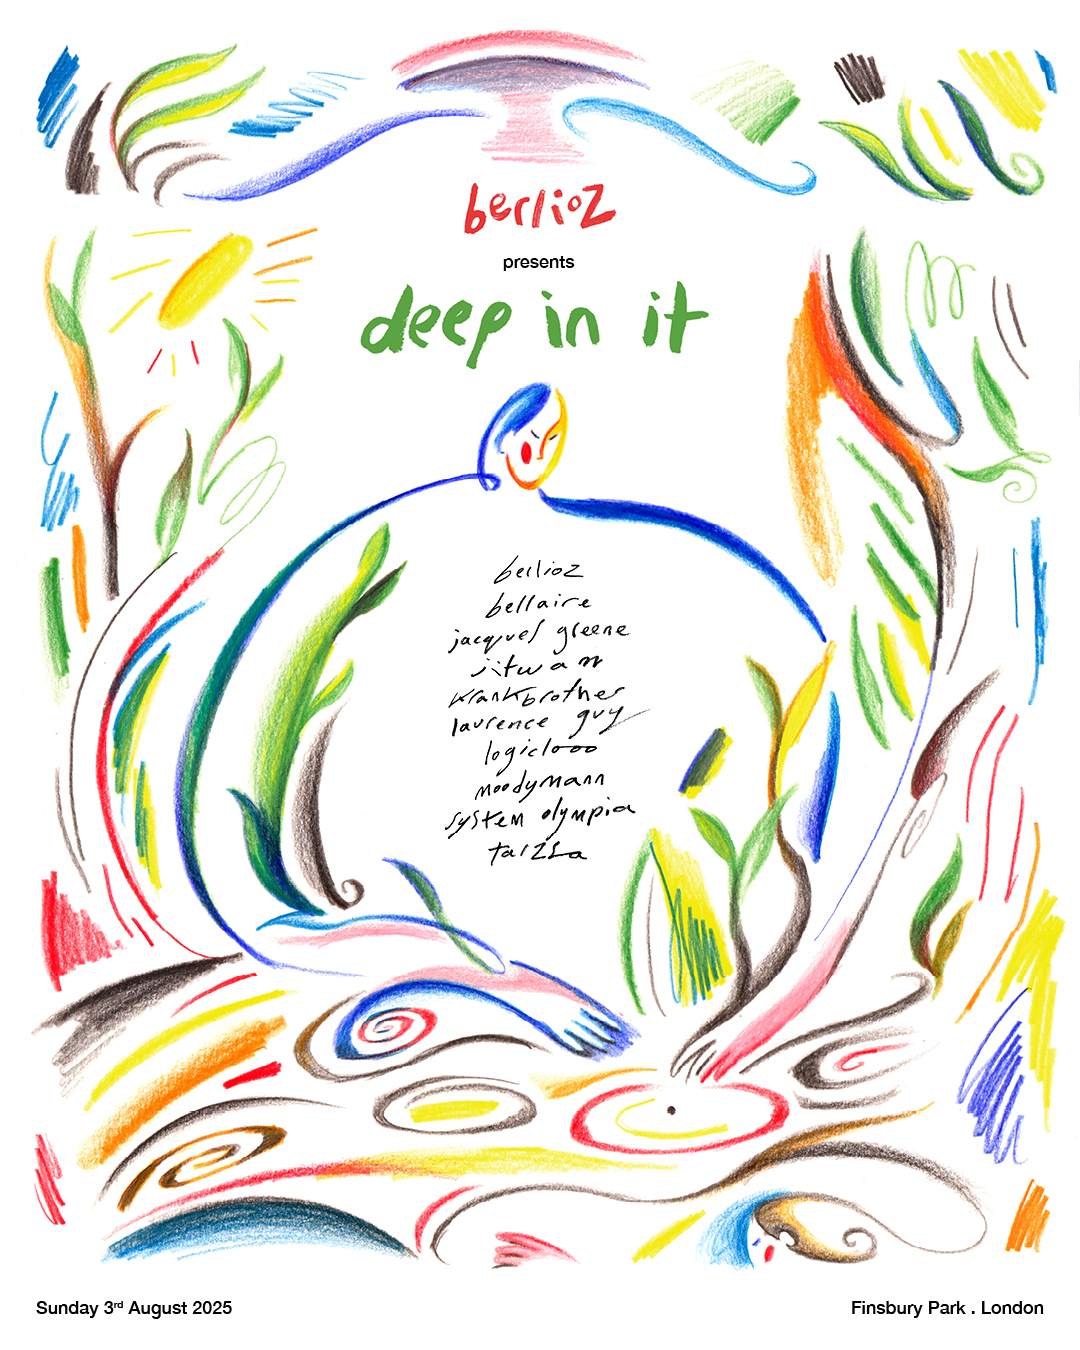 berlioz
presents
deep in it
berlioz
bellaire
jacques greene
jitwam
krankbrother
laurence guy
logic1000
moodymann
system olympia
taizsa
Sunday 3rd August 2025
Finsbury Park . London